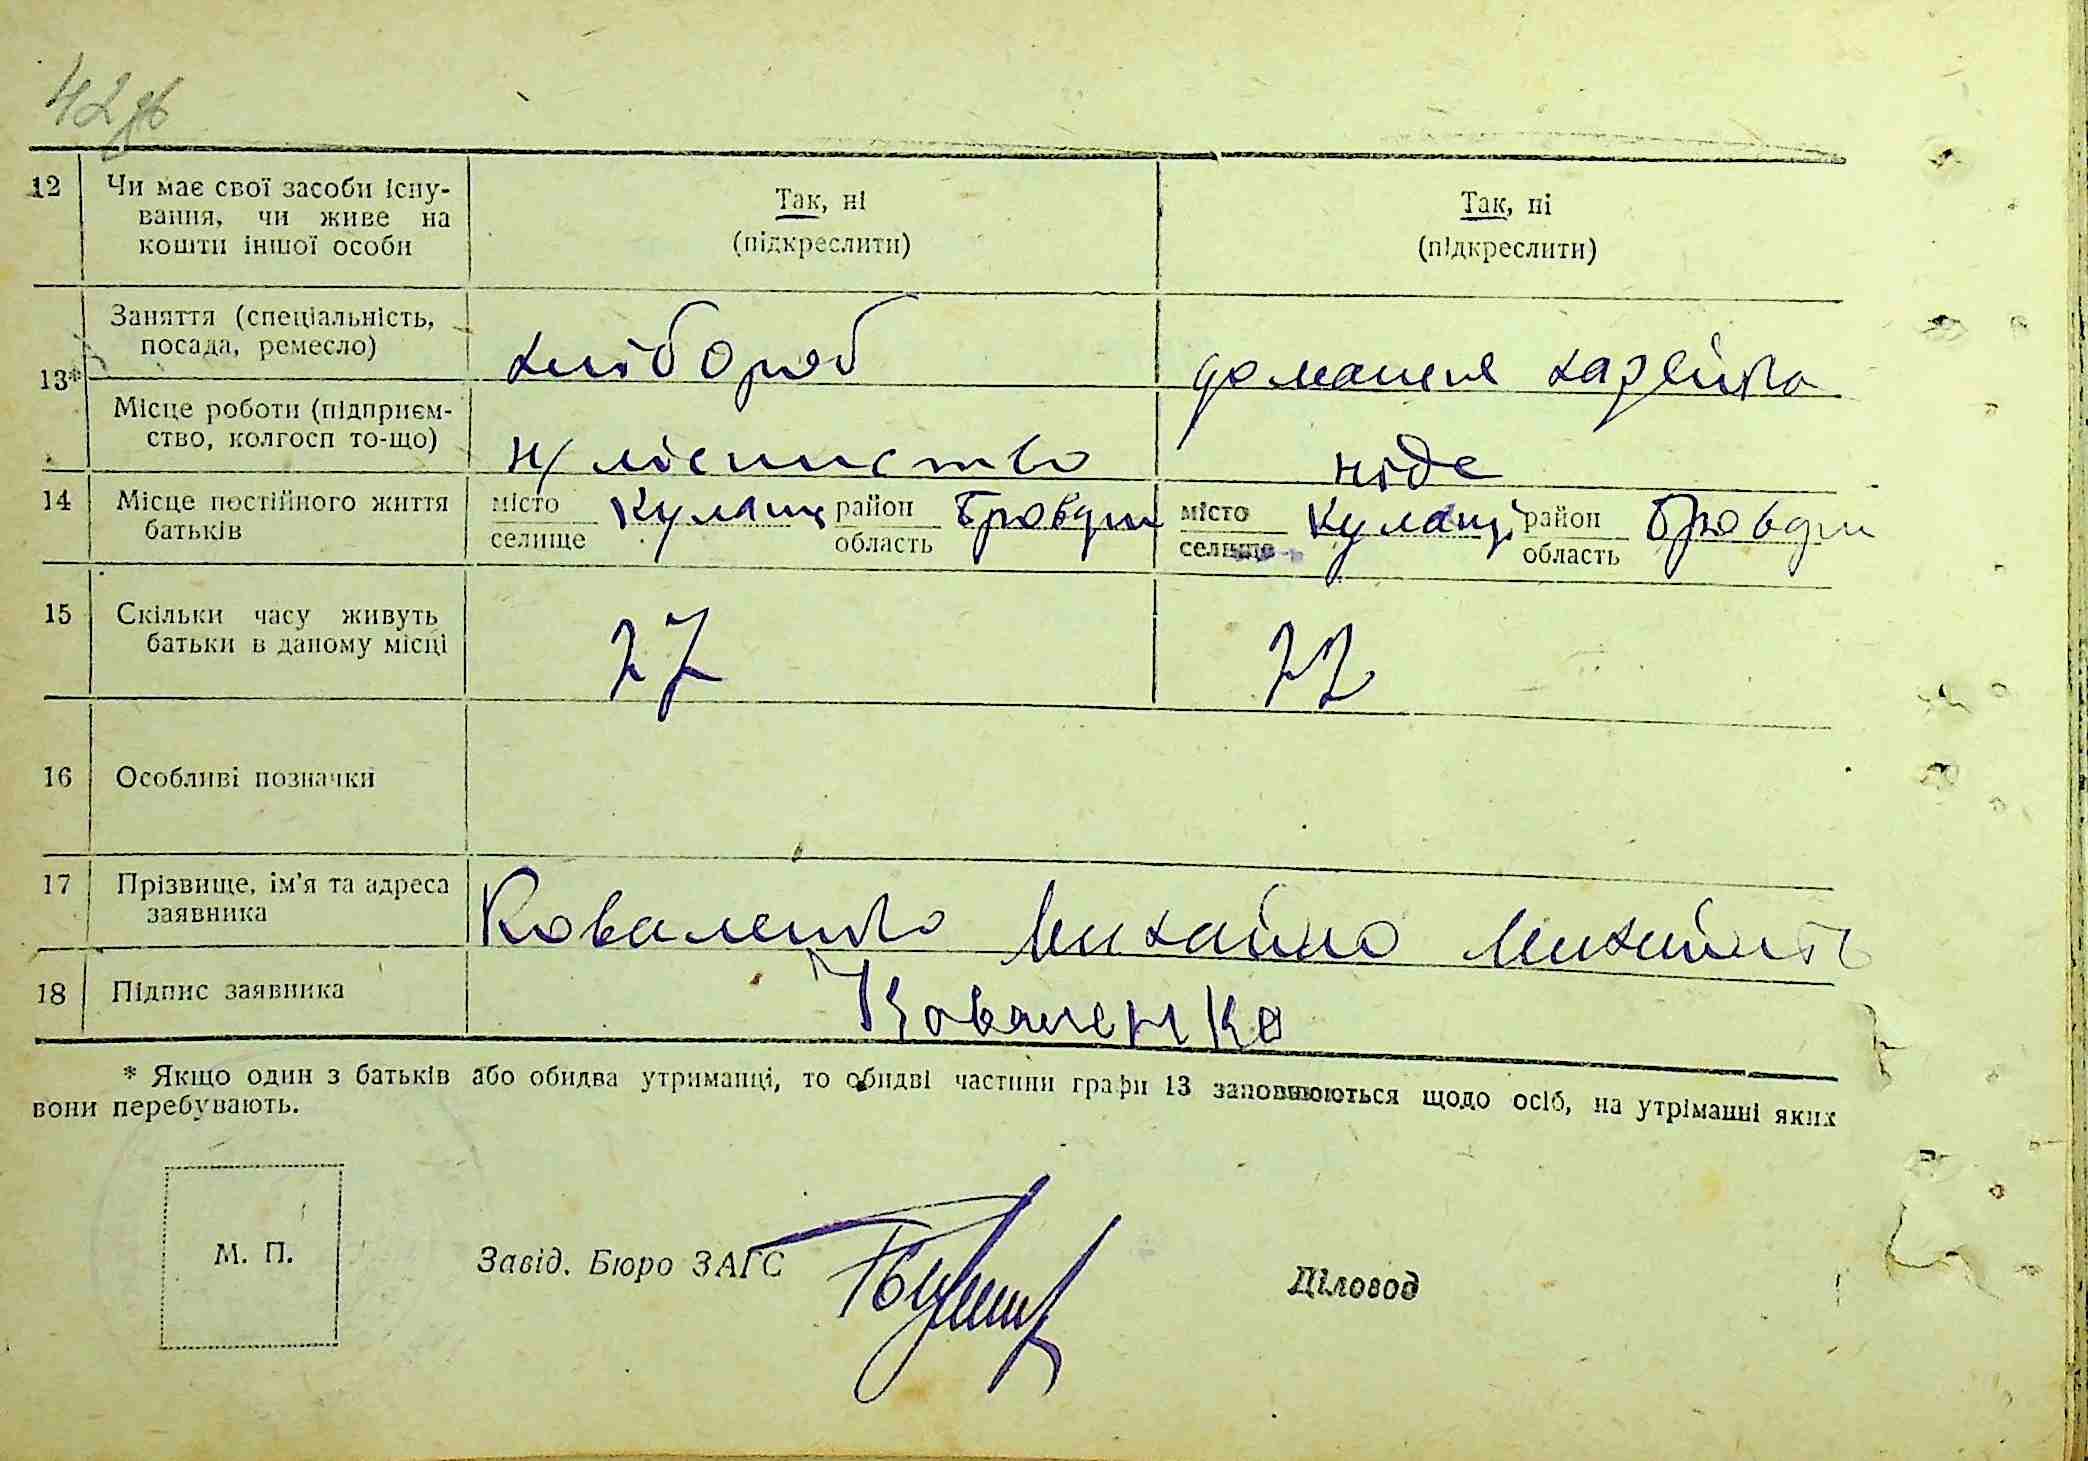 42зв
12 Чи має свої засоби існу-
вання, чи живе на
кошти іншої особи
Так, ні
(підкреслити)
Так, ні
(підкреслити)
13*
Заняття (спеціальність,
посада, ремесло)
хлібороб
домашня хазяйка
Місце роботи (підприєм-
ство, колгосп то-що)
ніде
14 Місце постійного життя
батьків
місто
селище
район
область
місто
селище
район
область
15 Скільки часу живуть
батьки в даному місці
27
22
16 Особливі позначки
17 Прізвище, ім'я та адреса
заявника
Коваленко Михайло
18 Підпис заявника
Коваленко
* Якщо один з батьків або обидва утриманці, то обидві частини графи 13 заповнюються щодо осіб, на утріманні яких
вони перебувають.
М. П.
Завід. Бюро ЗАГС
Діловод